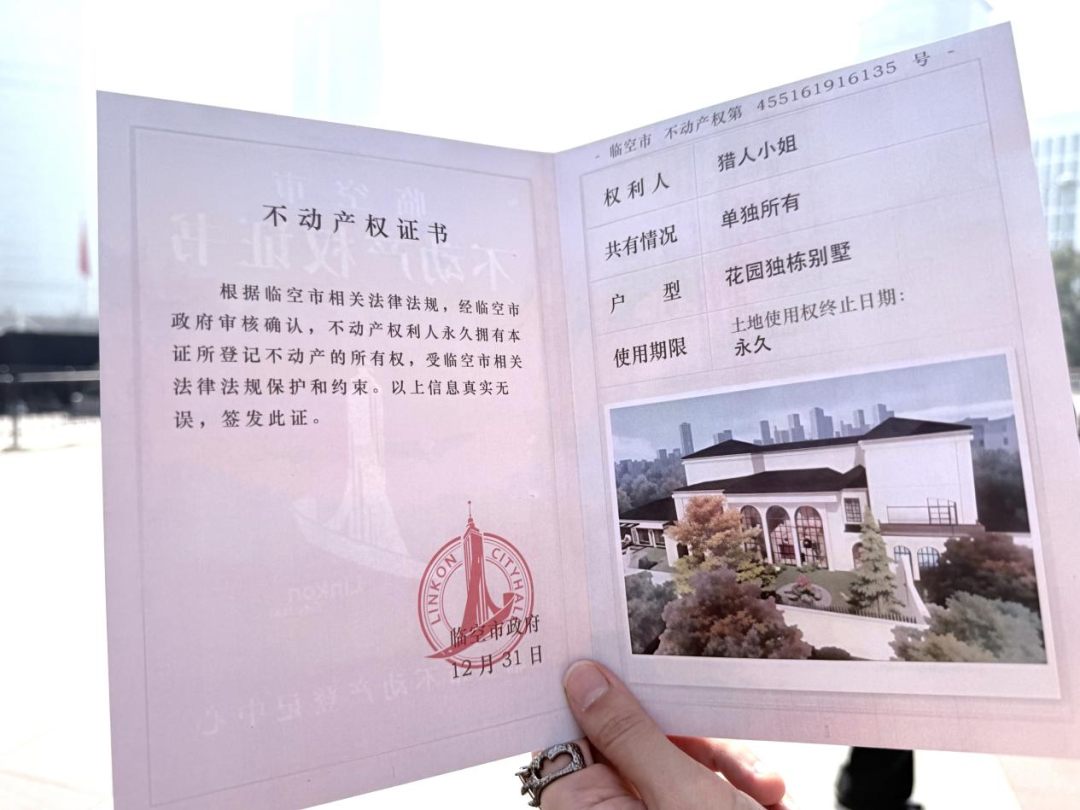 不动产权证书
根据临空市相关法律法规，经临空市
政府审核确认，不动产权利人永久拥有本
证所登记不动产的所有权，受临空市相关
法律法规保护和约束。以上信息真实无
误，签发此证。
LINKON CITYHALL
临空市政府
12月31日
- 临空市 不动产权第 455161916135 号 -
权利人 猎人小姐
共有情况 单独所有
户型 花园独栋别墅
使用期限 土地使用权终止日期：
永久
临空市
不动产权证书
Linkon
不动产登记中心